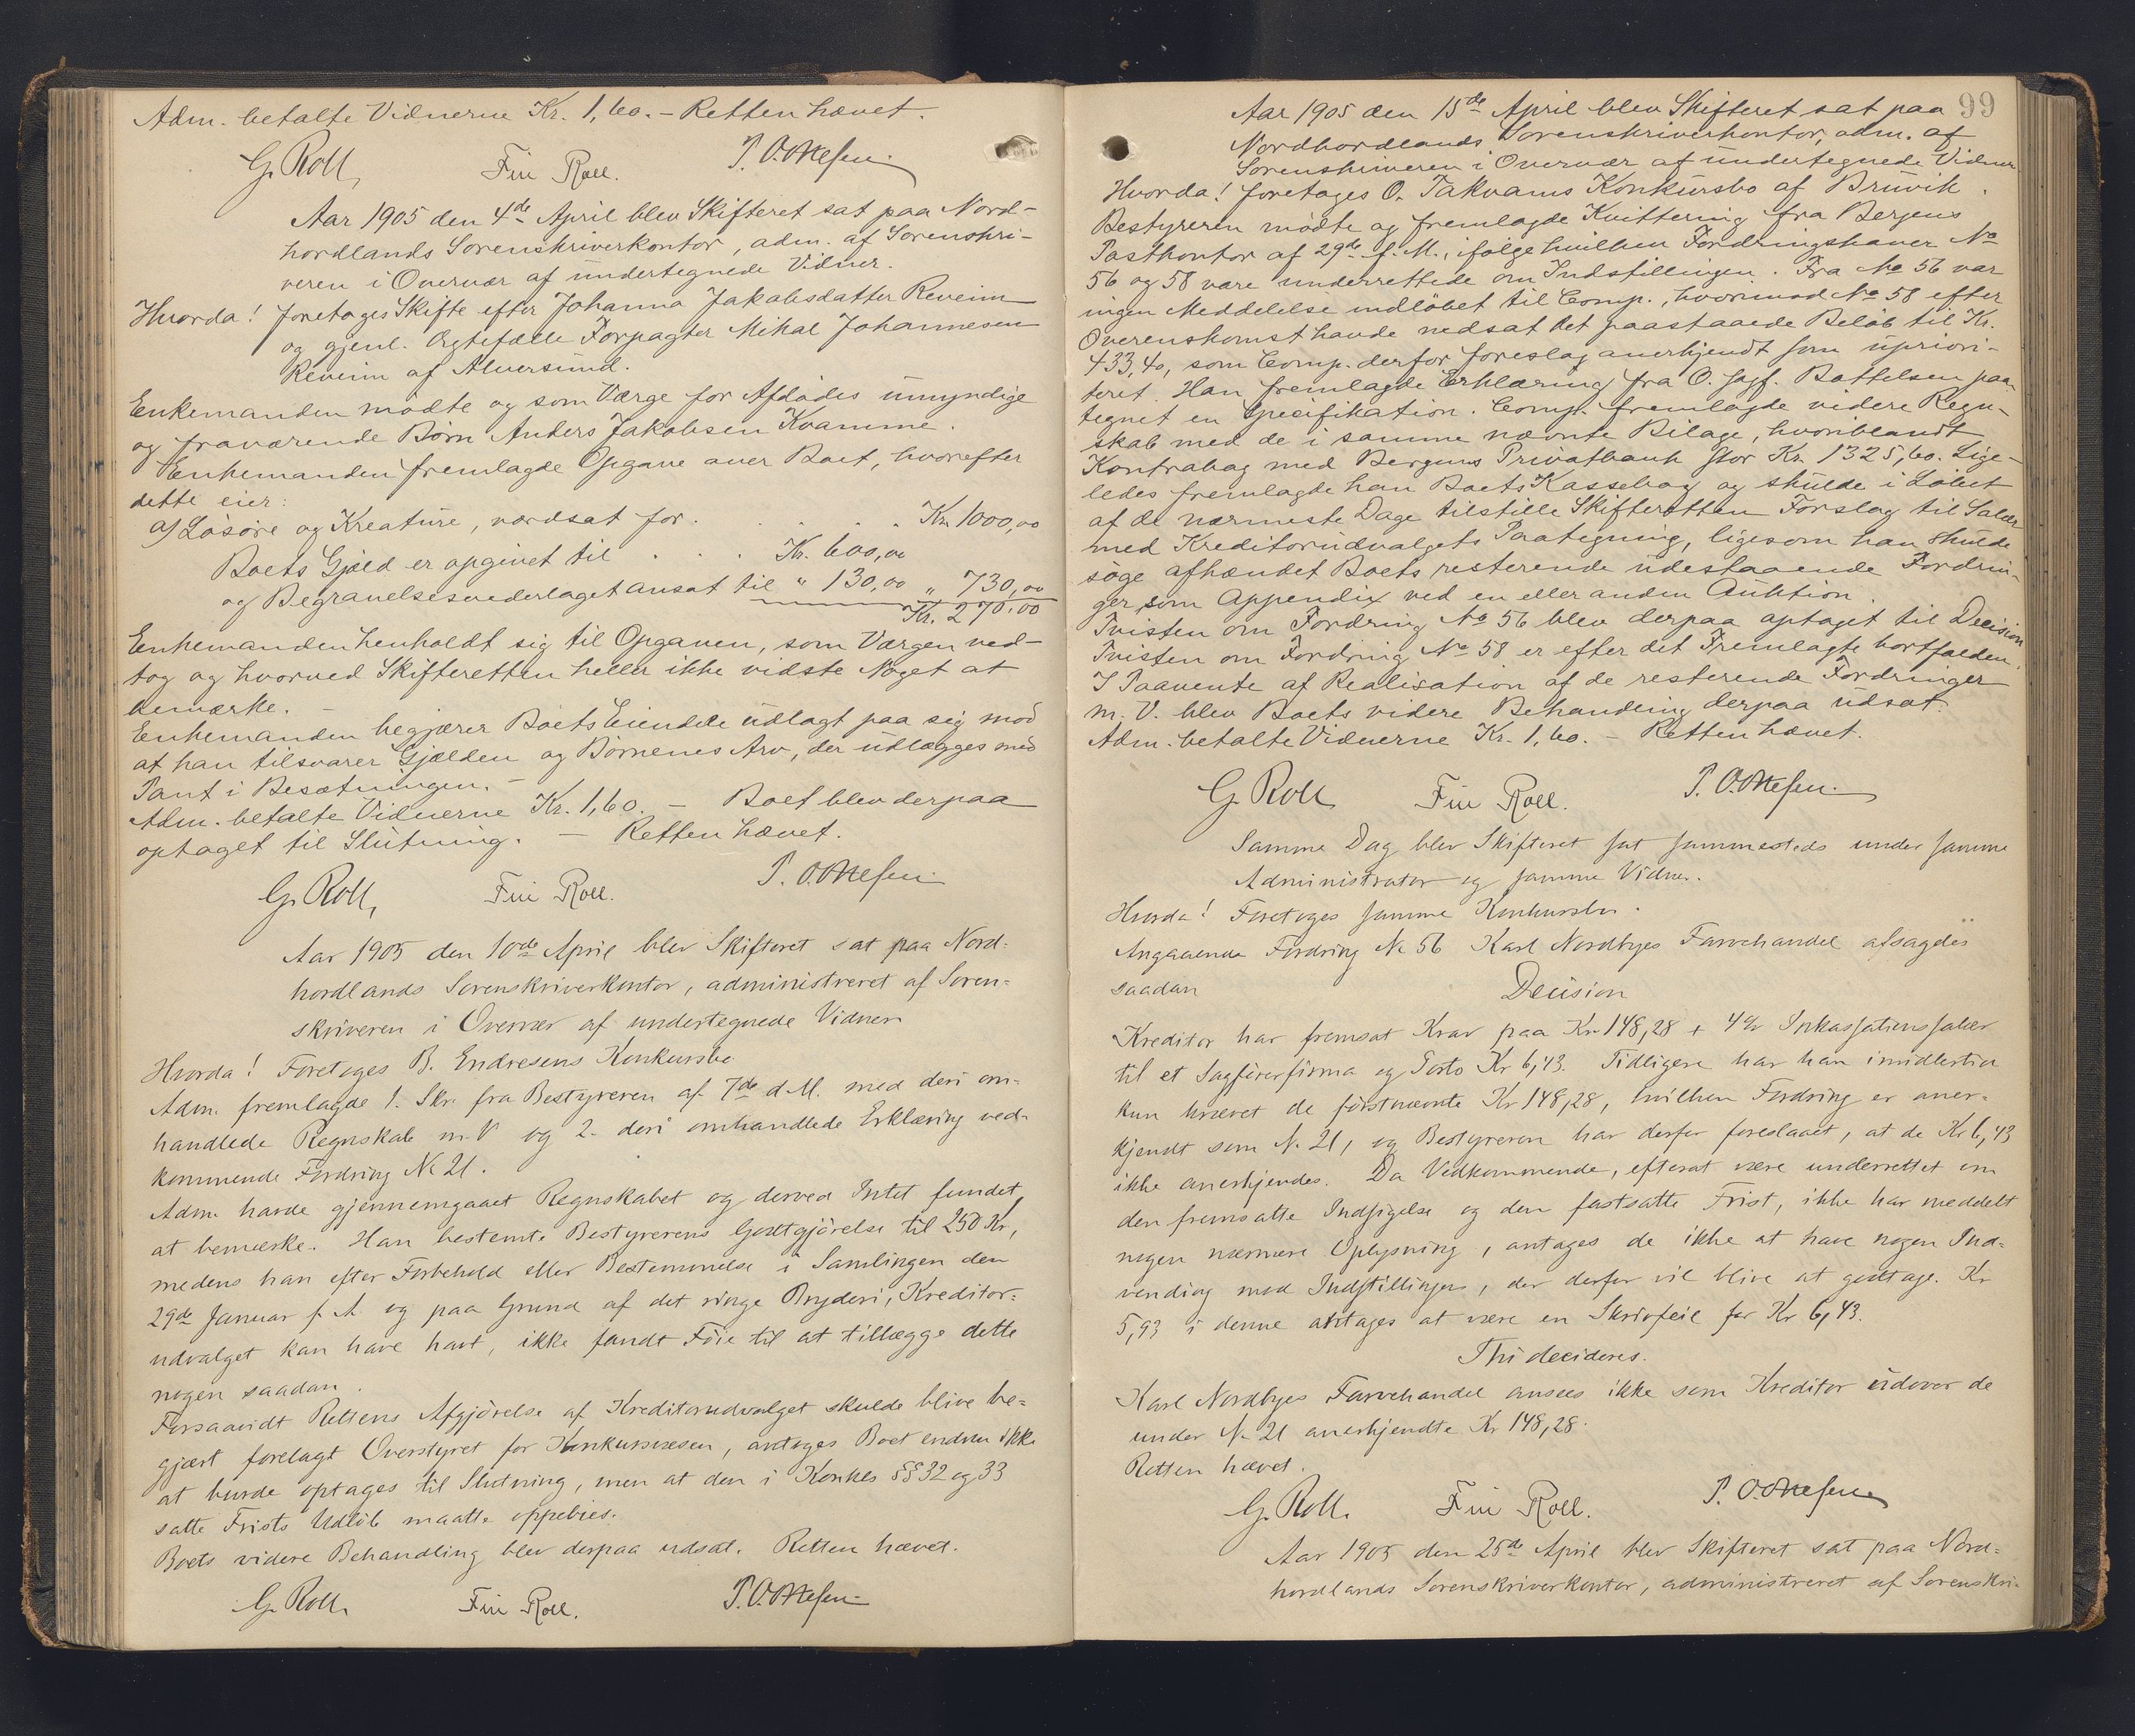 Adm. betalte Vidnerne Kr. 1,60. – Retten hævet.
G. Roll, Finn Roll. P. Ottesen.
Aar 1905 den 4de April blev Skifteret sat paa Nord-
hordlands Sorenskriverkontor, adm. af Sorenskri-
veren i Overvær af undertegnede Vidner.
Hvorda! foretoges Skifte efter Johanna Jakobsdatter Reveim
og gjenl. Ægtefælle Forpagter Mikal Johannesen
Reveim af Alversund.
Enkemanden mødte og som Værge for Afdødes umyndige
og fraværende Børn Anders Jakobsen Kvamme.
Enkemanden fremlagde Opgave over Boet, hvorefter
dette eier:
a) Løsøre og Kreature, værdsat for . . . . . Kr. 1000,00
Boets Gjæld er opgivet til . . . Kr. 600,00
og Begravelsesvederlaget ansat til " 130,00 " 730,00
Kr. 270,00
Enkemanden henholdt sig til Opgaven, som Værgen ved-
tog og hvorved Skifteretten heller ikke vidste Noget at
bemærke. –
Enkemanden begjærer Boets Eiendele udlagt paa sig mod
at han tilsvarer Gjælden og Børnenes Arv, der udlægges med
Pant i Besætningen. –
Adm. betalte Vidnerne Kr. 1,60. – Boet blev derpaa
optaget til Slutning. – Retten hævet.
G. Roll, Finn Roll. P. Ottesen.
Aar 1905 den 10de April blev Skifteret sat paa Nord=
hordlands Sorenskriverkontor, administreret af Soren=
skriveren i Overvær af undertegnede Vidner
Hvorda! Foretoges B. Endresens Konkursbo
Adm. fremlagde 1. Skr. fra Bestyreren af 7de d. M. med deri om=
handlede Regnskab m. V. og 2. deri omhandlede Erklæring ved=
kommende Fordring No 21.
Adm. havde gjennemgaaet Regnskabet og derved Intet fundet
at bemærke. Han bestemte Bestyrerens Godtgjörelse til 250 Kr,
medens han efter Forbehold eller Bestemmelse i Samlingen den
29de Januar f. A. og paa Grund af det ringe Bryderi, Kreditor=
udvalget kan have havt, ikke fandt Föie til at tillægge dette
nogen saadan.
Forsaavidt Rettens Afgjörelse af Kreditorudvalget skulde blive be=
gjært forelagt Overstyret for Konkursvæsen, antages Boet endnu ikke
at burde optages til Slutning, men at den i Konkls §§ 32 og 33
satte Frists Udlöb maatte oppebies.
Boets videre Behandling blev derpaa udsat. Retten hævet.
G. Roll. Finn Roll. P. Ottesen.
99
Aar 1905 den 15de April blev Skifteret sat paa
Nordhordlands Sorenskriverkontor, adm. af
Sorenskriveren i Overvær af undertegnede Vidner
Hvorda! foretoges O. Takvams Konkursbo af Bruvik.
Bestyreren mødte og fremlagde Kvittering fra Bergens
Postkontor af 29de f. M., ifølge hvilken Fordringshaver No
56 og 58 vare underrettede om Indstillingen. Fra No 56 var
ingen Meddelelse indløbet til Comp., hvorimod No 58 efter
Overenskomst havde nedsat det paastaaede Beløb til Kr.
433,40, som Comp. derfor foreslog anerkjendt som upriori-
teret. Han fremlagde Erklæring fra O. Sagf. Bottelsen paa-
tegnet en Specifikation. Comp. fremlagde videre Regn-
skab med de i samme nævnte Bilage, hvoriblandt
Kontrabog med Bergens Privatbank stor Kr. 1325,60. Lige-
ledes fremlagde han Boets Kassebog og skulde i Løbet
af de nærmeste Dage tilstille Skifteretten Forslag til Salær
med Kreditorudvalgets Paategning, ligesom han skulde
søge afhændet Boets resterende udestaaende Fordrin-
ger som Appendix ved en eller anden Auktion.
Tvisten om Fordring No 56 blev derpaa optaget til Decision
Tvisten om Fordring No 58 er efter det Fremlagte bortfalden.
I Paavente af Realisation af de resterende Fordringer
m. V. blev Boets videre Behandling derpaa udsat.
Adm. betalte Vidnerne Kr. 1,60. – Retten hævet.
G. Roll Finn Roll. P. Ottesen.
Samme Dag blev Skifteret sat sammesteds under samme
Administrator og samme Vidner.
Hvorda! Foretoges samme Konkursbo.
Angaaende Fordring No 56 Karl Nordbyes Farvehandel afsagdes
saadan
Decision
Kreditor har fremsat Krav paa Kr 148,28 + 4% Inkassationssalær
til et Sagförerfirma og Porto Kr 6,43. Tidligere har han imidlertid
kun krævet de förstnævnte Kr 148,28, hvilken Fordring er aner=
kjendt som No 21, og Bestyreren har derfor foreslaaet, at de Kr 6,43
ikke anerkjendes. Da Vedkommende, efterat være underrettet om
den fremsatte Indsigelse og den fastsatte Frist, ikke har meddelt
nogen nærmere Oplysning, antages de ikke at have nogen Ind=
vending mod Indstillingen, der derfor vil blive at godtage. Kr
5,93 i denne antages at være en Skrivfeil for Kr 6,43.
Thi decideres.
Karl Nordbyes Farvehandel ansees ikke som Kreditor udover de
under No 21 anerkjendte Kr 148,28.
Retten hævet.
G. Roll. Finn Roll. P. Ottesen
Aar 1905 den 25de April blev Skifteret sat paa Nord=
hordlands Sorenskriverkontor, administreret af Sorenskri=